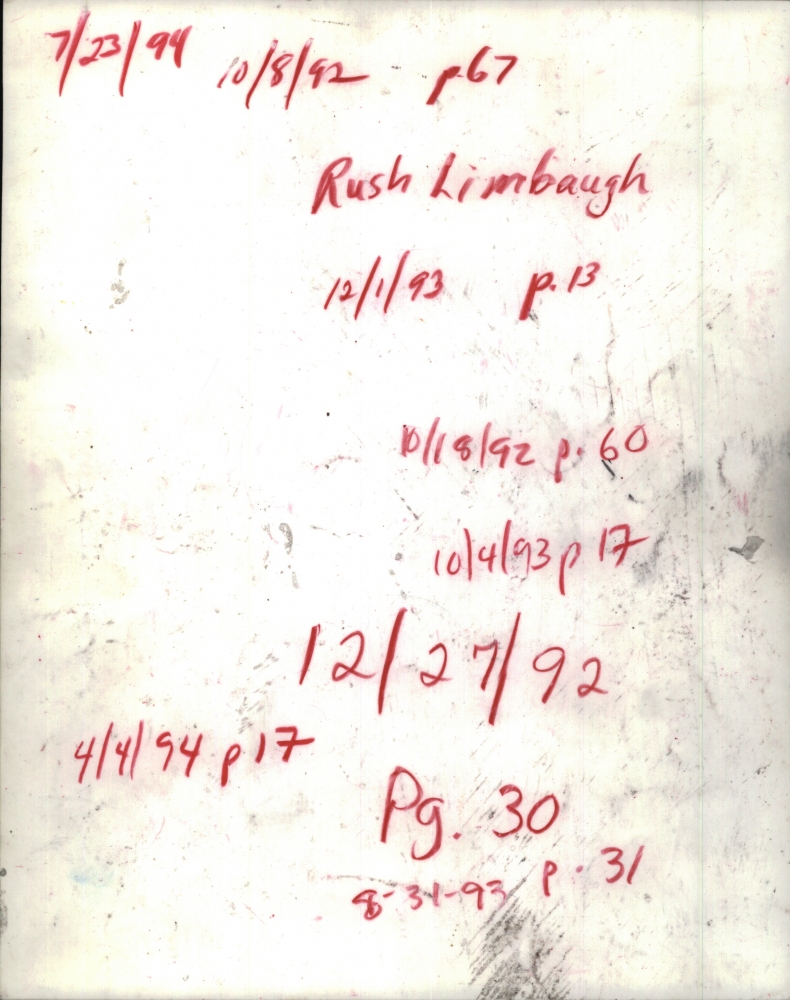 7/23/94 10/8/92 p.67
Rush Limbaugh
12/1/93 p.13
10/18/92 p. 60
10/4/93 p 17
12/27/92
4/4/94 p 17
Pg. 30
8-31-93 p. 31